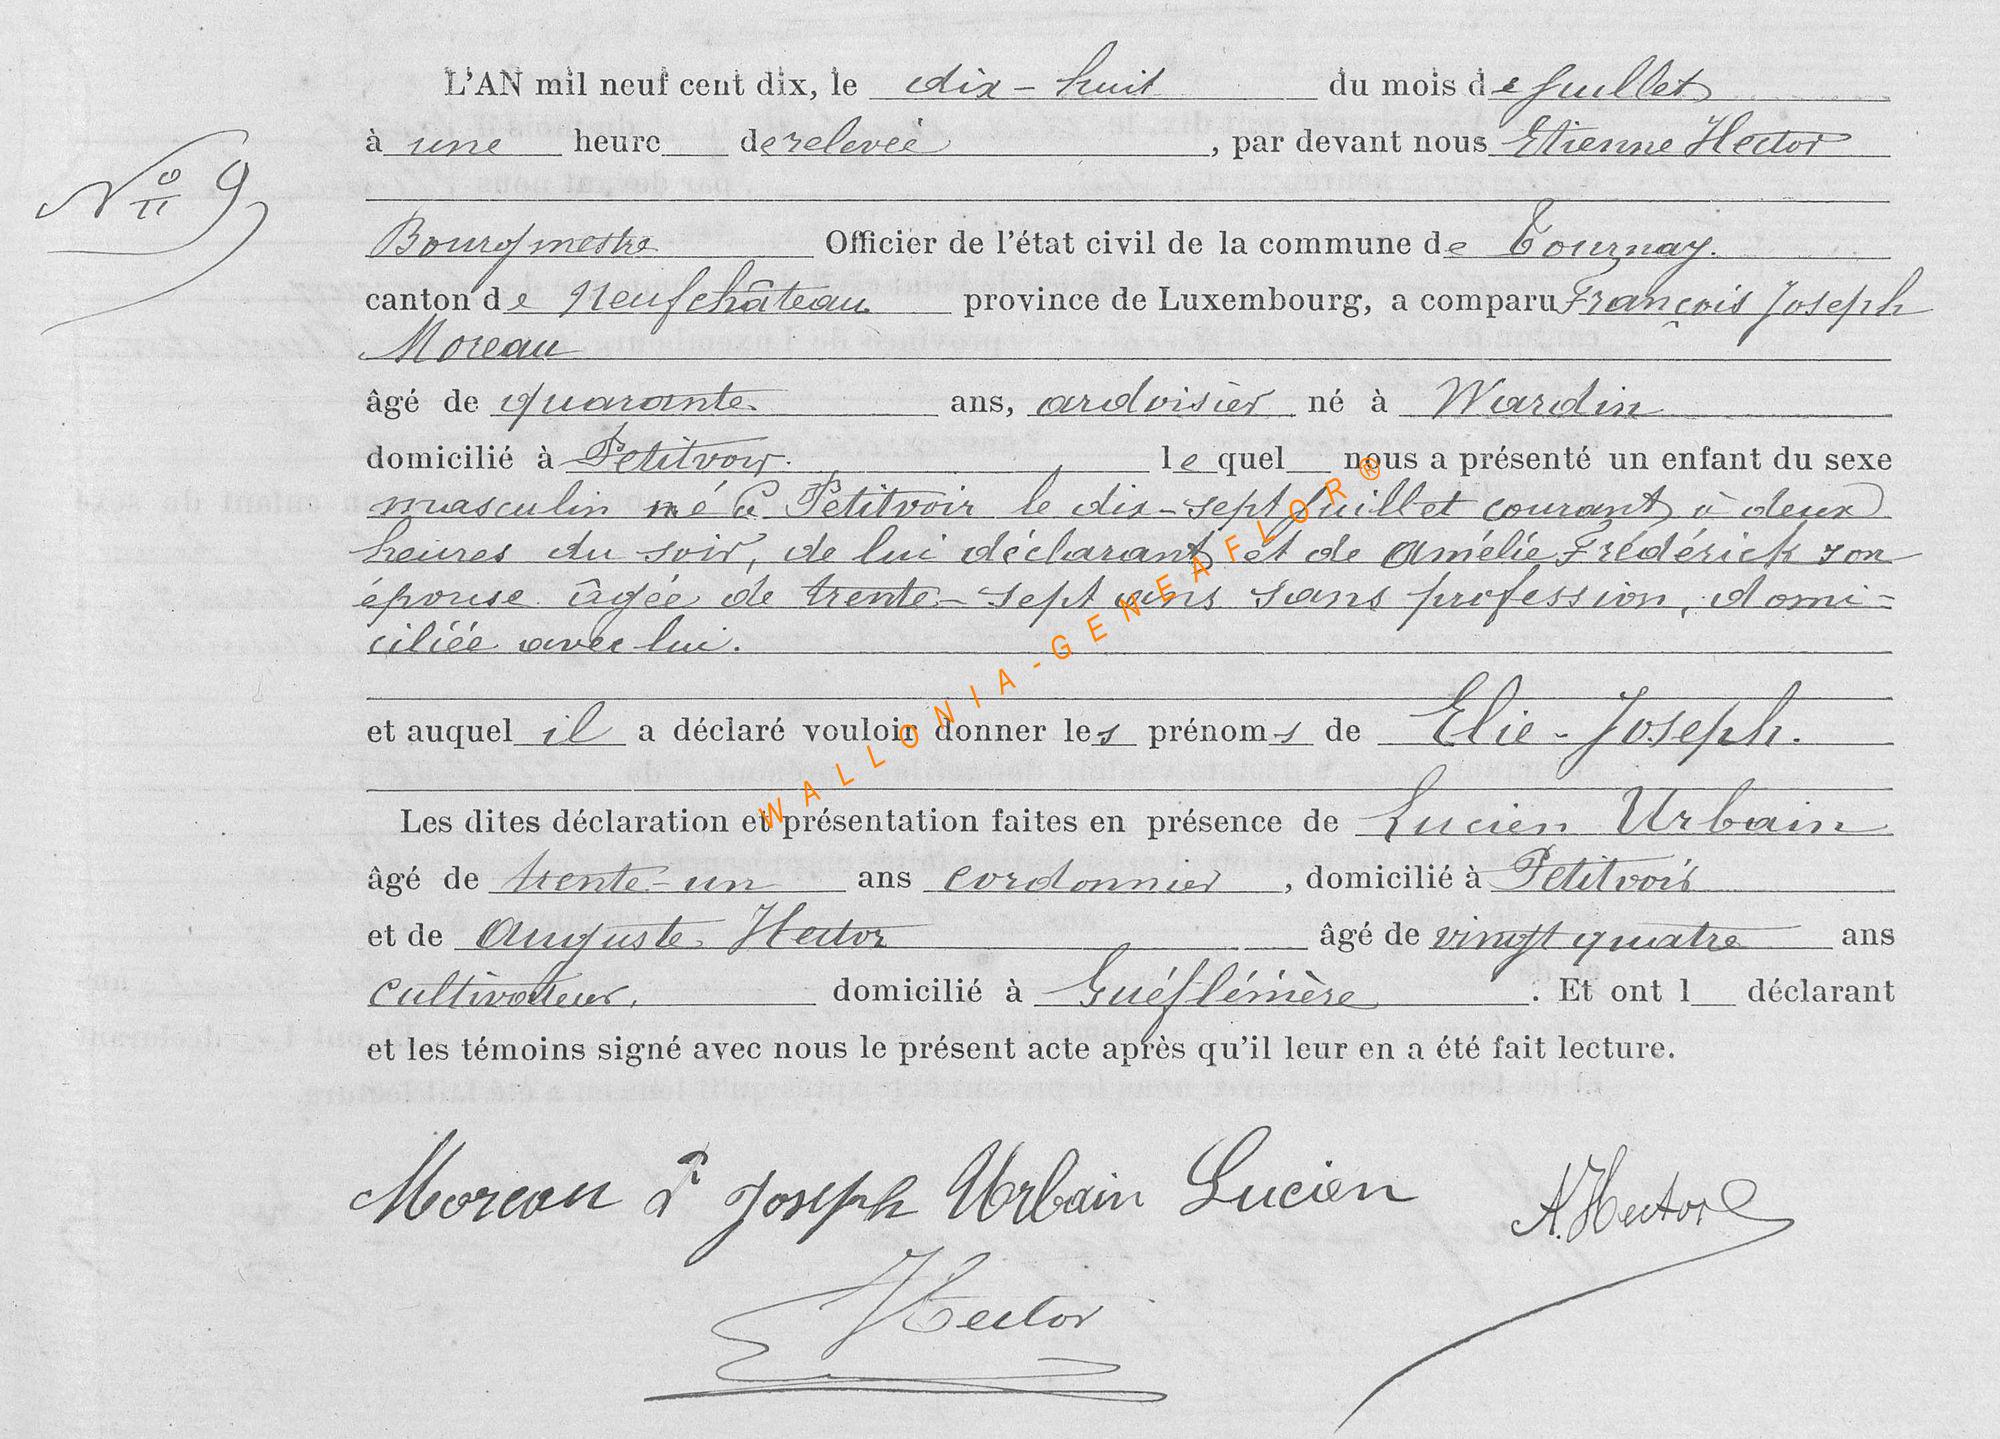 L'AN mil neuf cent dix, le dix-huit du mois de Juillet
à une heure de relevée, par devant nous Etienne Hector
N° 9
Bourgmestre Officier de l'état civil de la commune de Tournay.
canton de Neufchâteau province de Luxembourg, a comparu François Joseph
Moreau
âgé de quarante ans, ardoisier né à Wardin
domicilié à Petitvoir. lequel nous a présenté un enfant du sexe
masculin né à Petitvoir le dix-sept Juillet courant à deux
heures du soir, de lui déclarant et de Amélie Frédérick son
épouse âgée de trente-sept ans sans profession, domi-
ciliée avec lui.
et auquel il a déclaré vouloir donner les prénoms de Elie-Joseph.
Les dites déclaration et présentation faites en présence de Lucien Urbain
âgé de trente-un ans cordonnier, domicilié à Petitvoir
et de Auguste Hector âgé de vingt quatre ans
cultivateur, domicilié à . Et ont l déclarant
et les témoins signé avec nous le présent acte après qu'il leur en a été fait lecture.
Moreau Joseph Urbain Lucien A. Hector
Hector
WALLONIA-GENEAFLOR®